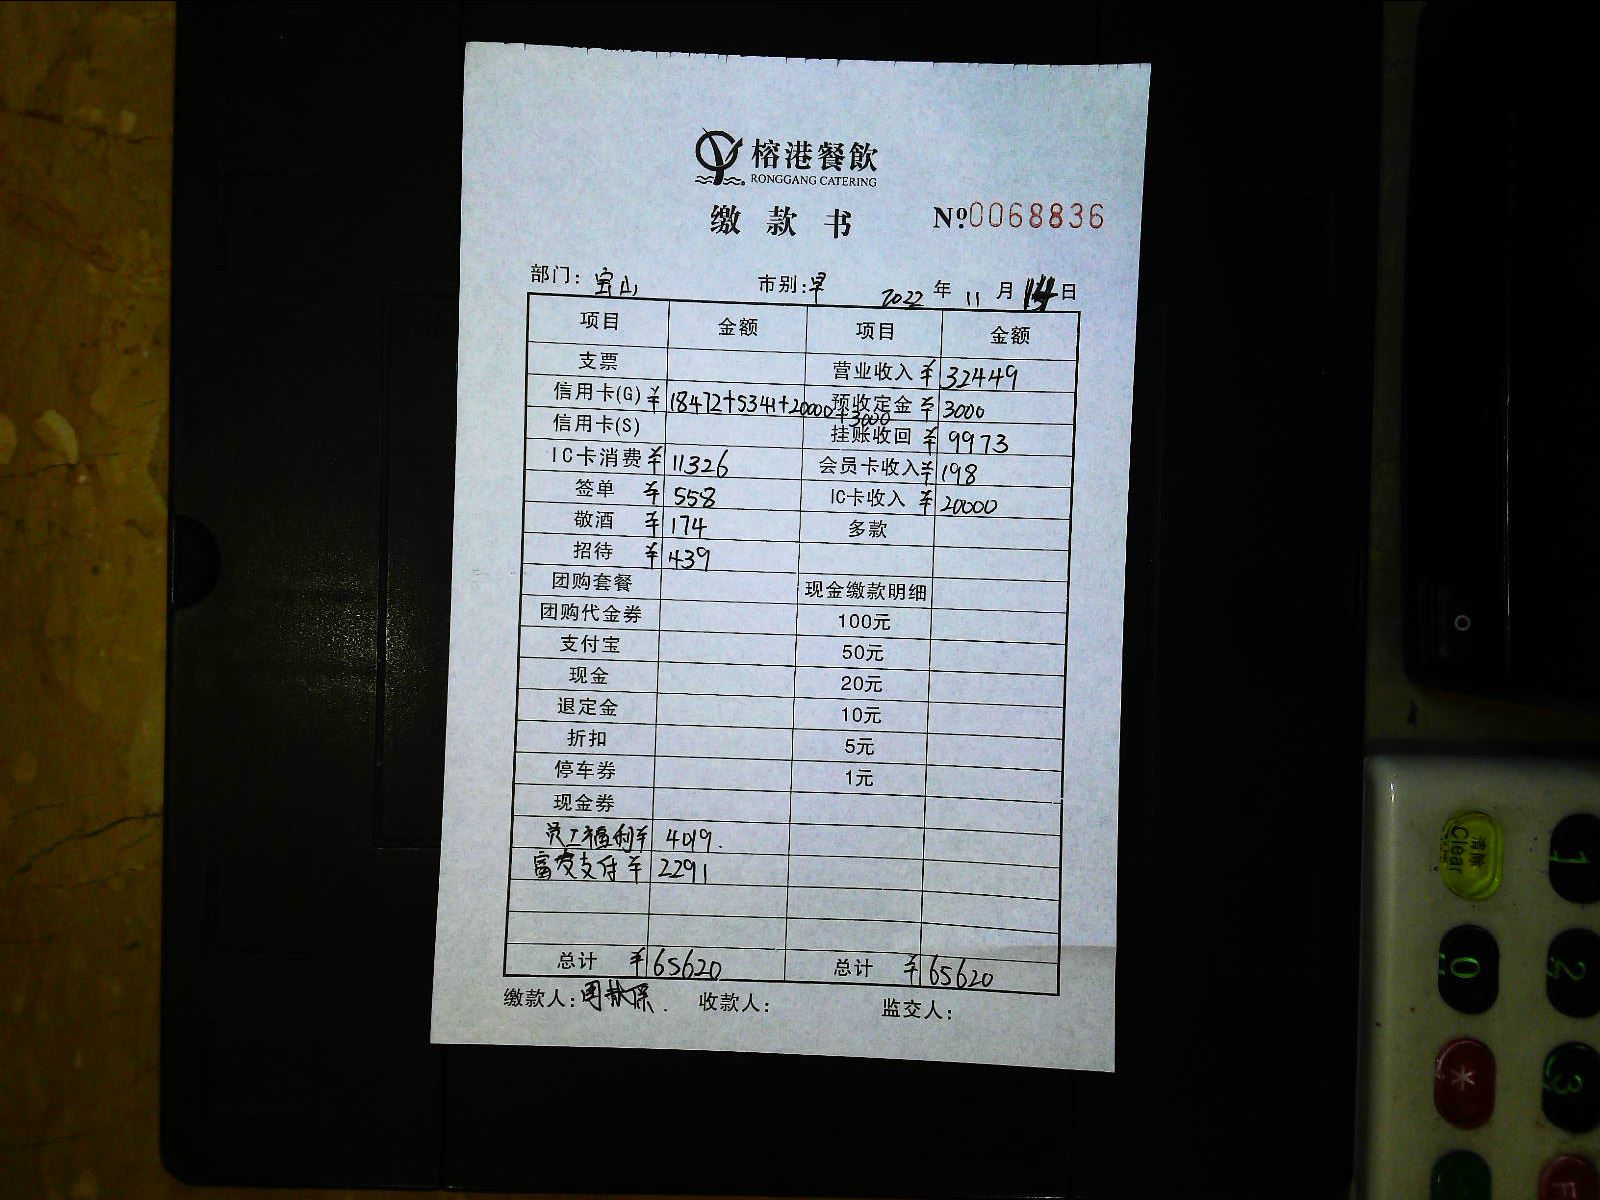 榕港餐飲
RONGGANG CATERING
缴款书 №0068836
部门: 宝山 市别: 早 2022 年 11 月 14 日
项目 金额 项目 金额
支票 营业收入 ¥ 32449
信用卡(G) ¥ 18472+5341+20000+3000 预收定金 ¥ 3000
信用卡(S) 挂账收回 ¥ 9973
IC卡消费 ¥ 11326 会员卡收入 ¥ 198
签单 ¥ 558 IC卡收入 ¥ 20000
敬酒 ¥ 174 多款
招待 ¥ 439
团购套餐 现金缴款明细
团购代金券 100元
支付宝 50元
现金 20元
退定金 10元
折扣 5元
停车券 1元
现金券
员工福利 ¥ 4019.
富友支付 ¥ 2291
总计 ¥ 65620 总计 ¥ 65620
缴款人: 收款人: 监交人:
清除
Clear
1
0
2
*
3